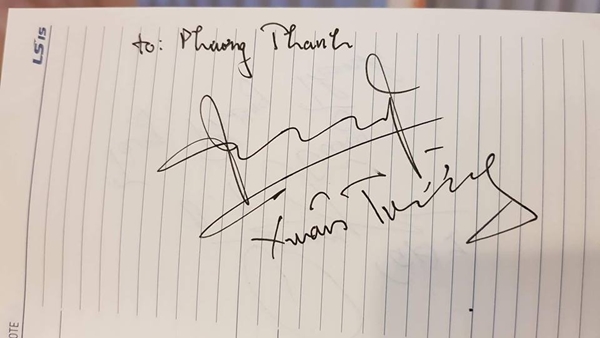 LSis
to: Phương Thanh
Xuân Trường
OTE